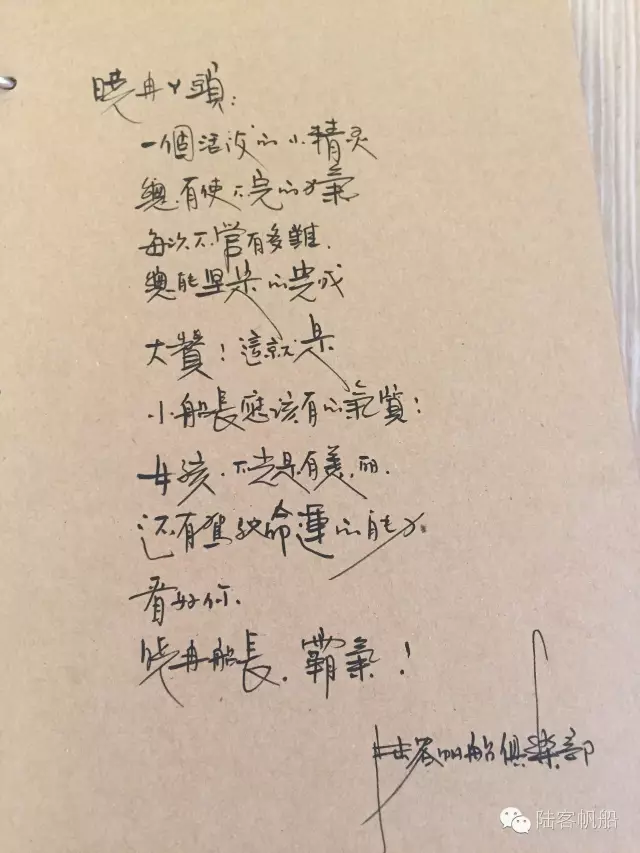 晓冉丫頭：
一個活泼的小精灵
總有使不完的力氣
每次不管有多難，
總能坚定的完成
大贊！這就是
小船長應該有的氣質：
女孩，不光是有美丽，
还有駕驶命運的能力。
看好你，
晓冉船長，霸氣！
陆客帆船俱楽部
陆客帆船